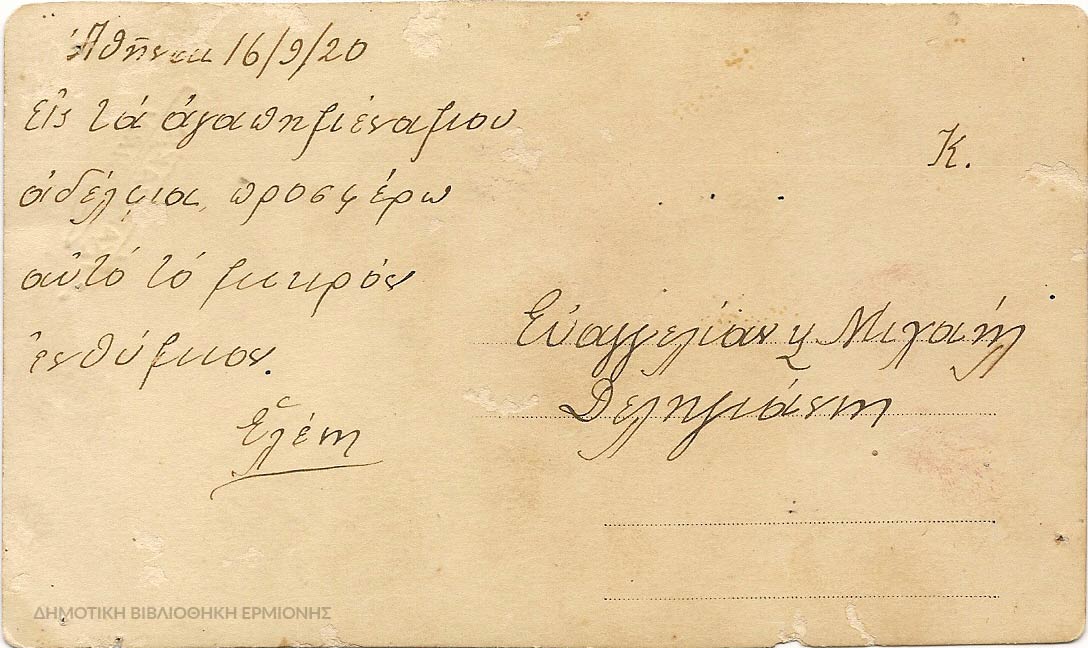 Ἀθῆναι 16/9/20
Εἰς τά ἀγαπημένα μου
ἀδέλφια, προσφέρω
αὐτό τό μικρόν
ἐνθύμιον.
Ἑλένη
Κ.
Εὐαγγελίαν ϗ Μιχαήλ
Δεληγιάννη
ΔΗΜΟΤΙΚΗ ΒΙΒΛΙΟΘΗΚΗ ΕΡΜΙΟΝΗΣ